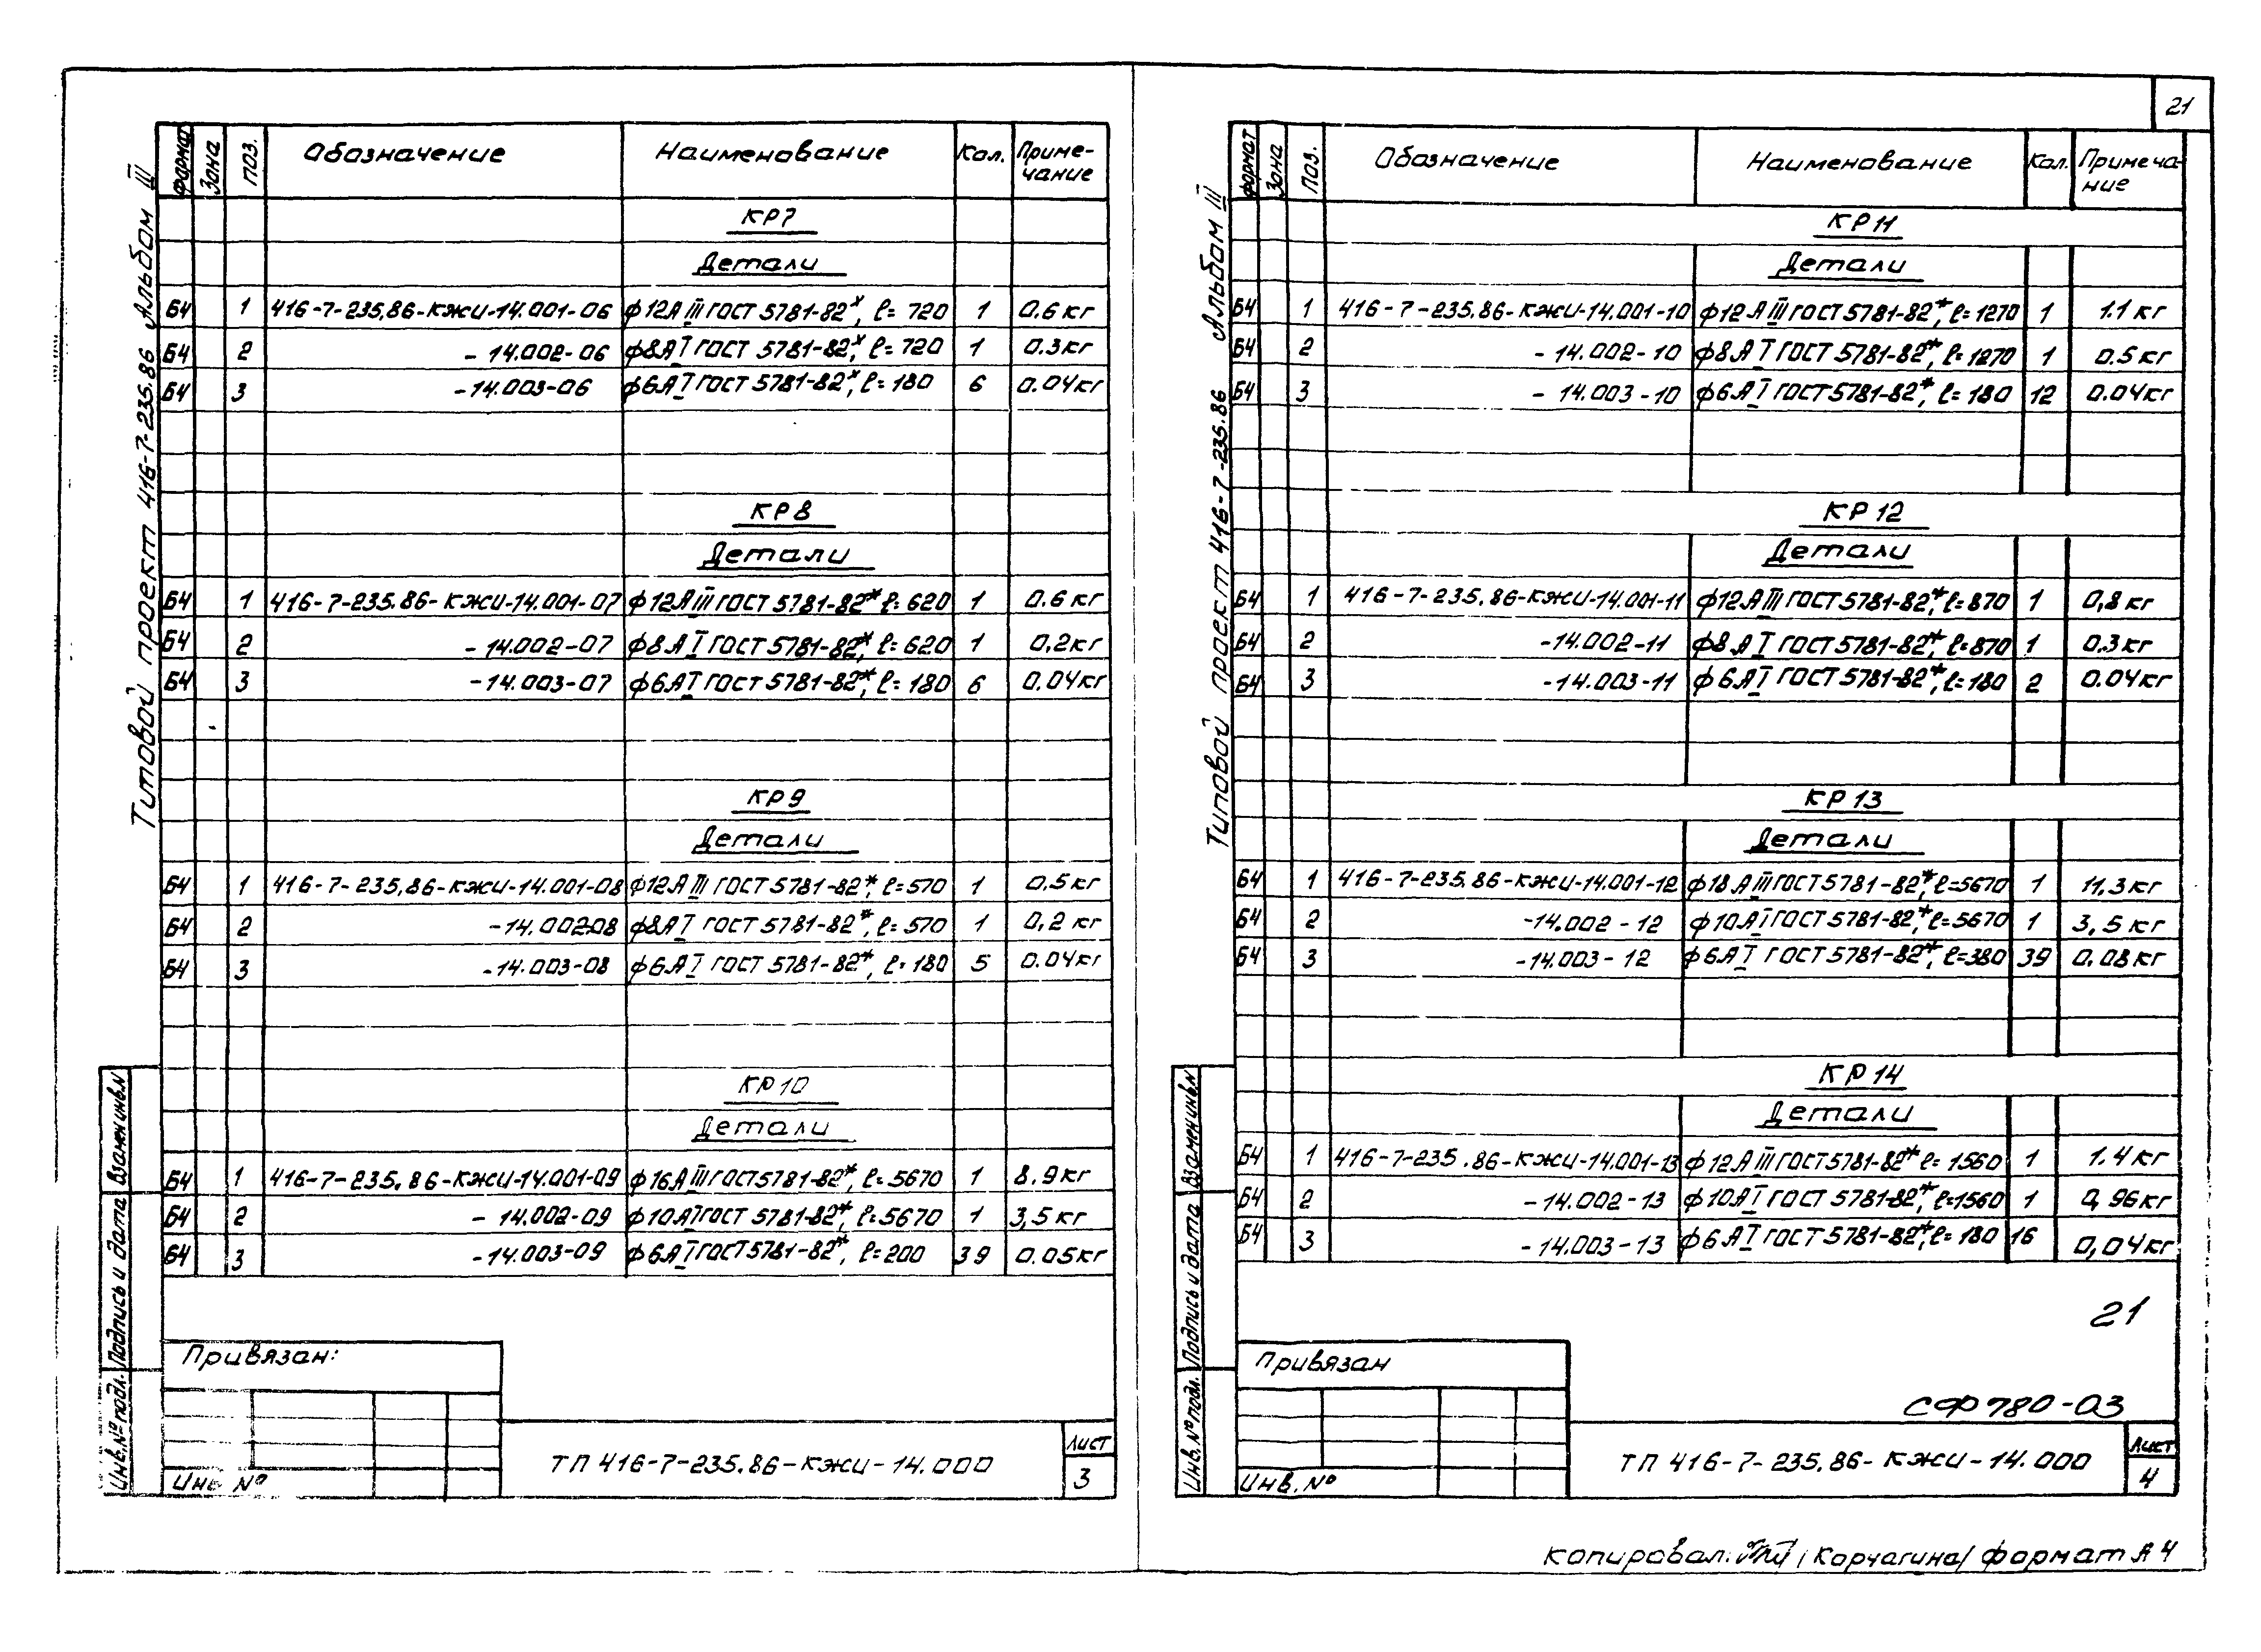 21
Типовой проект 416-7-235.86 Альбом III
Формат Зона Поз. Обозначение Наименование Кол. Приме-
чание
КР7
Детали
Б4 1 416-7-235.86-КЖИ-14.001-06 ф12АIII ГОСТ 5781-82*, ℓ=720 1 0.6 кг
Б4 2 -14.002-06 ф8АI ГОСТ 5781-82*, ℓ=720 1 0.3кг
Б4 3 -14.003-06 ф6АI ГОСТ 5781-82*, ℓ=180 6 0.04кг
КР8
Детали
Б4 1 416-7-235.86-КЖИ-14.001-07 ф12АIII ГОСТ 5781-82* ℓ=620 1 0.6 кг
Б4 2 -14.002-07 ф8АI ГОСТ 5781-82*, ℓ=620 1 0,2кг
Б4 3 -14.003-07 ф6АI ГОСТ 5781-82*, ℓ=180 6 0.04кг
КР9
Детали
Б4 1 416-7-235,86-КЖИ-14.001-08 ф12АIII ГОСТ 5781-82*, ℓ=570 1 0,5кг
Б4 2 -14.002-08 ф8АI ГОСТ 5781-82*, ℓ=570 1 0,2 кг
Б4 3 -14.003-08 ф6АI ГОСТ 5781-82*, ℓ=180 5 0.04кг
КР10
Детали
Б4 1 416-7-235.86-КЖИ-14.001-09 ф16АIII ГОСТ 5781-82*, ℓ=5670 1 8.9кг
Б4 2 -14.002-09 ф10АI ГОСТ 5781-82*, ℓ=5670 1 3,5кг
Б4 3 -14.003-09 ф6АI ГОСТ 5781-82*, ℓ=200 39 0.05кг
Инв.№ подл. Подпись и дата Взамен инв.N
Привязан:
Инв №
ТП 416-7-235.86-КЖИ-14.000
Лист
3
Типовой проект 416-7-235.86 Альбом III
Формат Зона Поз. Обозначение Наименование Кол. Примеча-
ние
КР11
Детали
Б4 1 416-7-235.86-КЖИ-14.001-10 ф12АIII ГОСТ 5781-82*, ℓ=1270 1 1.1 кг
Б4 2 -14.002-10 ф8АI ГОСТ 5781-82*, ℓ=1270 1 0.5 кг
Б4 3 -14.003-10 ф6АI ГОСТ 5781-82*, ℓ=180 12 0.04кг
КР12
Детали
Б4 1 416-7-235.86-КЖИ-14.001-11 ф12АIII ГОСТ 5781-82*, ℓ=870 1 0,8 кг
Б4 2 -14.002-11 ф8АI ГОСТ 5781-82*, ℓ=870 1 0.3 кг
Б4 3 -14.003-11 ф6АI ГОСТ 5781-82*, ℓ=180 2 0.04кг
КР13
Детали
Б4 1 416-7-235.86-КЖИ-14.001-12 ф18АIII ГОСТ 5781-82*, ℓ=5670 1 11,3кг
Б4 2 -14.002-12 ф10АI ГОСТ 5781-82*, ℓ=5670 1 3,5 кг
Б4 3 -14.003-12 ф6АI ГОСТ 5781-82*, ℓ=380 39 0,08кг
КР14
Детали
Б4 1 416-7-235.86-КЖИ-14.001-13 ф12АIII ГОСТ 5781-82* ℓ=1560 1 1.4кг
Б4 2 -14.002-13 ф10АI ГОСТ 5781-82*, ℓ=1560 1 0,96кг
Б4 3 -14.003-13 ф6АI ГОСТ 5781-82*, ℓ=180 16 0,04кг
21
СФ780-03
Инв.№ подл. Подпись и дата Взамен инв.N
Привязан
Инв.№
ТП 416-7-235.86-КЖИ-14.000
Лист
4
Копировал: /Корчагина/ формат А4